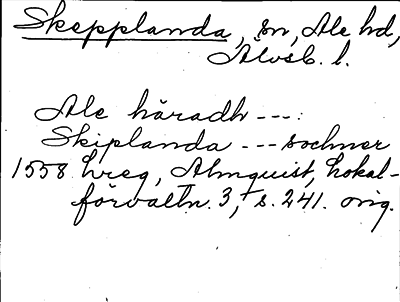 Skepplanda, sn, Ale hd,
Älvsb. l.
Ale häradh ---:
Skiplanda --- sochner
1558 hreg, Almquist, Lokal-
förvaltn. 3, s. 241. orig.